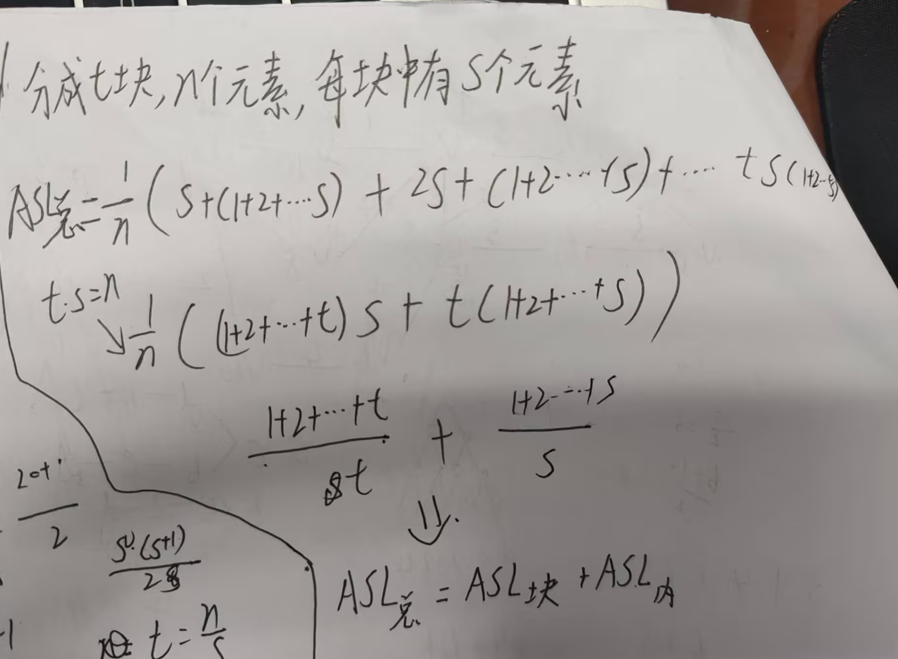 分成t块,n个元素,每块中有S个元素
ASL总=1/n(S+(1+2+…S)+2S+(1+2……+S)+…tS(1+2…S)
t·s=n
↘1/n((1+2+…+t)S+t(1+2+…+S))
(1+2+…+t)/t+(1+2…+S)/S
⇓
ASL总=ASL块+ASL内
2
S·(S+1)/2S
t=n/S